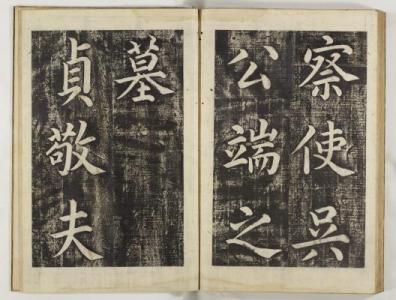 察使吴
公端之
墓
貞敬夫